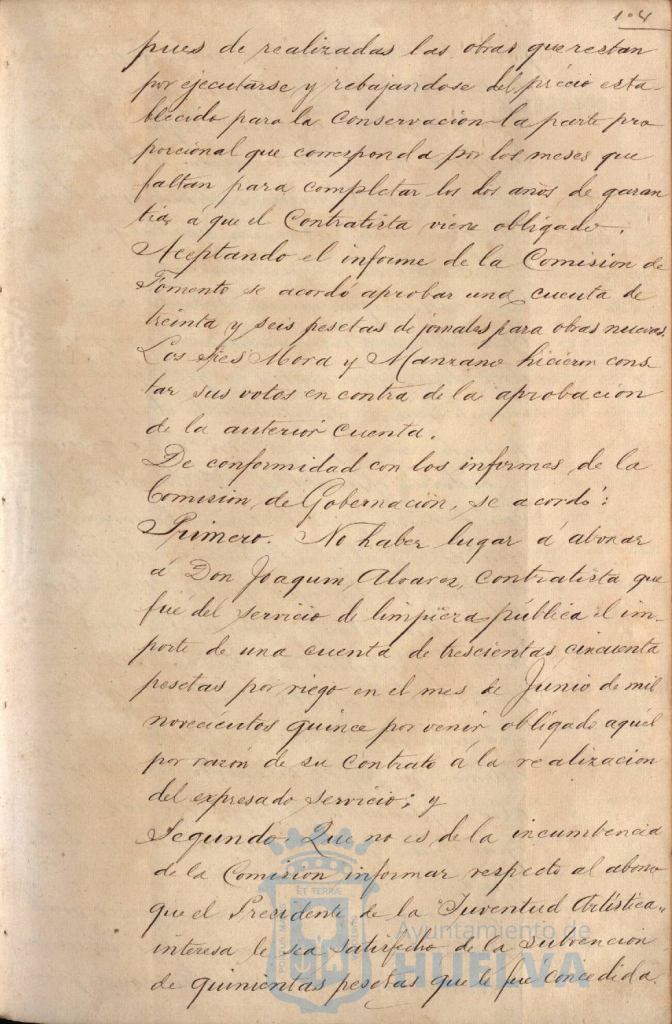 104
pues de realizadas las obras que restan
por ejecutarse y rebajandose del précio esta-
blecido para la conservacion la parte pro
porcional que corresponda por los meses que
faltan para completar los dos años de garan
tia, á que el Contratista viene obligado.
Aceptando el informe de la Comision de
Fomento se acordó aprobar una cuenta de
treinta y seis pesetas de jornales para obras nuevas.
Los Sres Mora y Manzano hicieron cons-
tar sus votos en contra de la aprobacion
de la anterior cuenta.
De conformidad con los informes de la
Comision de Gobernacion, se acordó:
Primero. No haber lugar á abonar
á Don Joaquin Alvarez, contratista que
fué del servicio de limpieza pública el im-
porte de una cuenta de trescientas cincuenta
pesetas por riego en el mes de Junio de mil
novecientos quince por venir obligado aquél
por razón de su contrato á la realizacion
del expresado servicio; y
Segundo. Que no es de la incumbencia
de la Comision informar respecto al abono
que el Presidente de la "Juventud Artística"
interesa le sea satisfecho de la subvencion
de quinientas pesetas que le fue concedida.
Ayuntamiento de
HUELVA